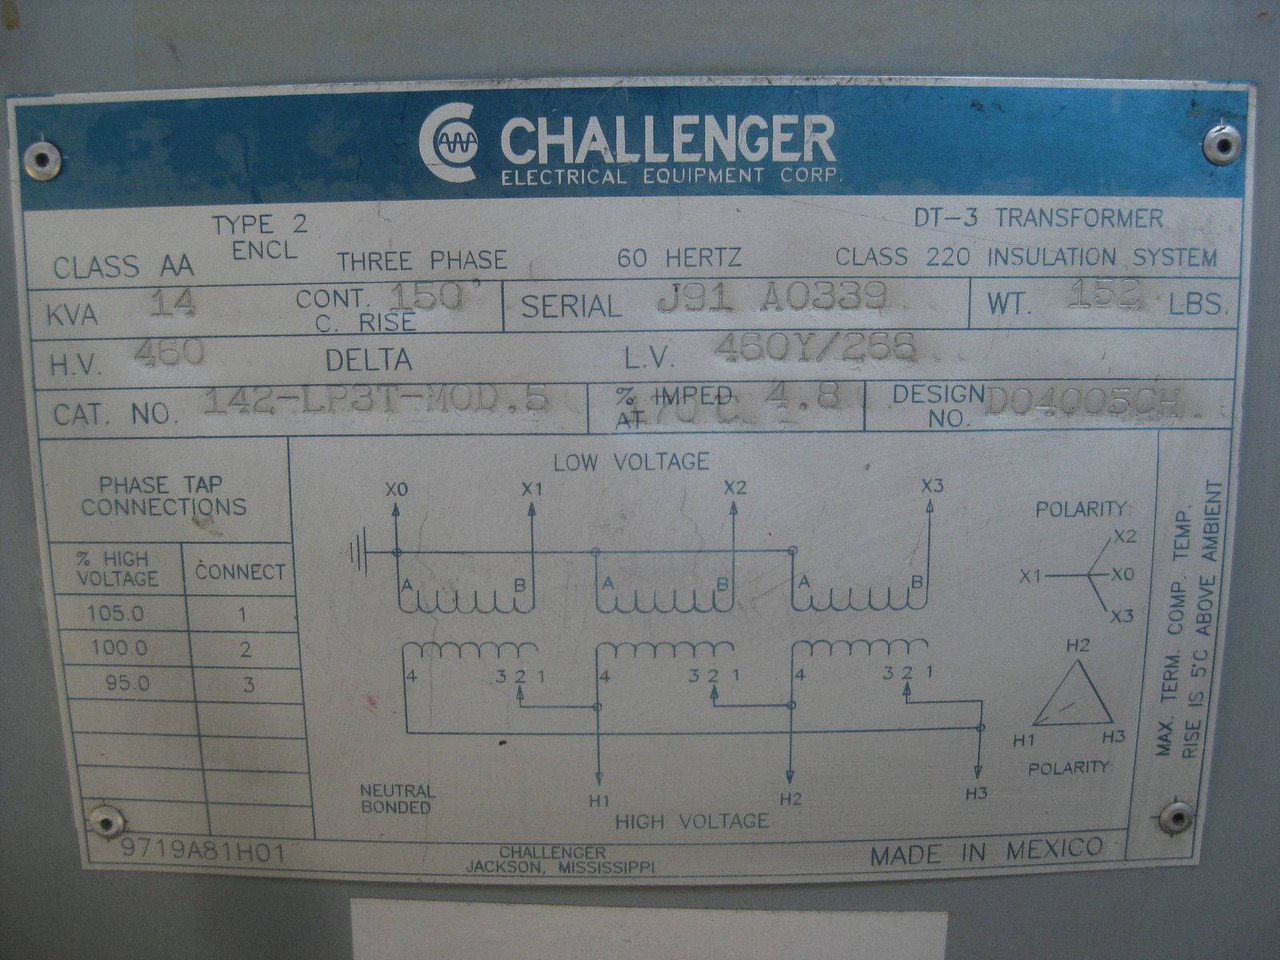 CHALLENGER
ELECTRICAL EQUIPMENT CORP.
TYPE 2
ENCL
DT-3 TRANSFORMER
CLASS AA THREE PHASE 60 HERTZ CLASS 220 INSULATION SYSTEM
KVA 14 CONT. 150° C. RISE SERIAL J91 A0339 WT. 152 LBS.
H.V. 460 DELTA L.V. 460Y/266
CAT. NO. 142-LP3T-MOD.5 % IMPED. AT 170 C 4.8 DESIGN NO. D04005CH
PHASE TAP
CONNECTIONS
% HIGH VOLTAGE CONNECT
105.0 1
100.0 2
95.0 3
LOW VOLTAGE
X0 X1 X2 X3
A B A B A B
4 3 2 1 4 3 2 1 4 3 2 1
H1 H2 H3
NEUTRAL
BONDED
HIGH VOLTAGE
POLARITY:
X2
X1 X0
X3
H2
H1 H3
POLARITY:
MAX. TERM. COMP. TEMP.
RISE IS 5°C ABOVE AMBIENT
9719A81H01
CHALLENGER
JACKSON, MISSISSIPPI
MADE IN MEXICO